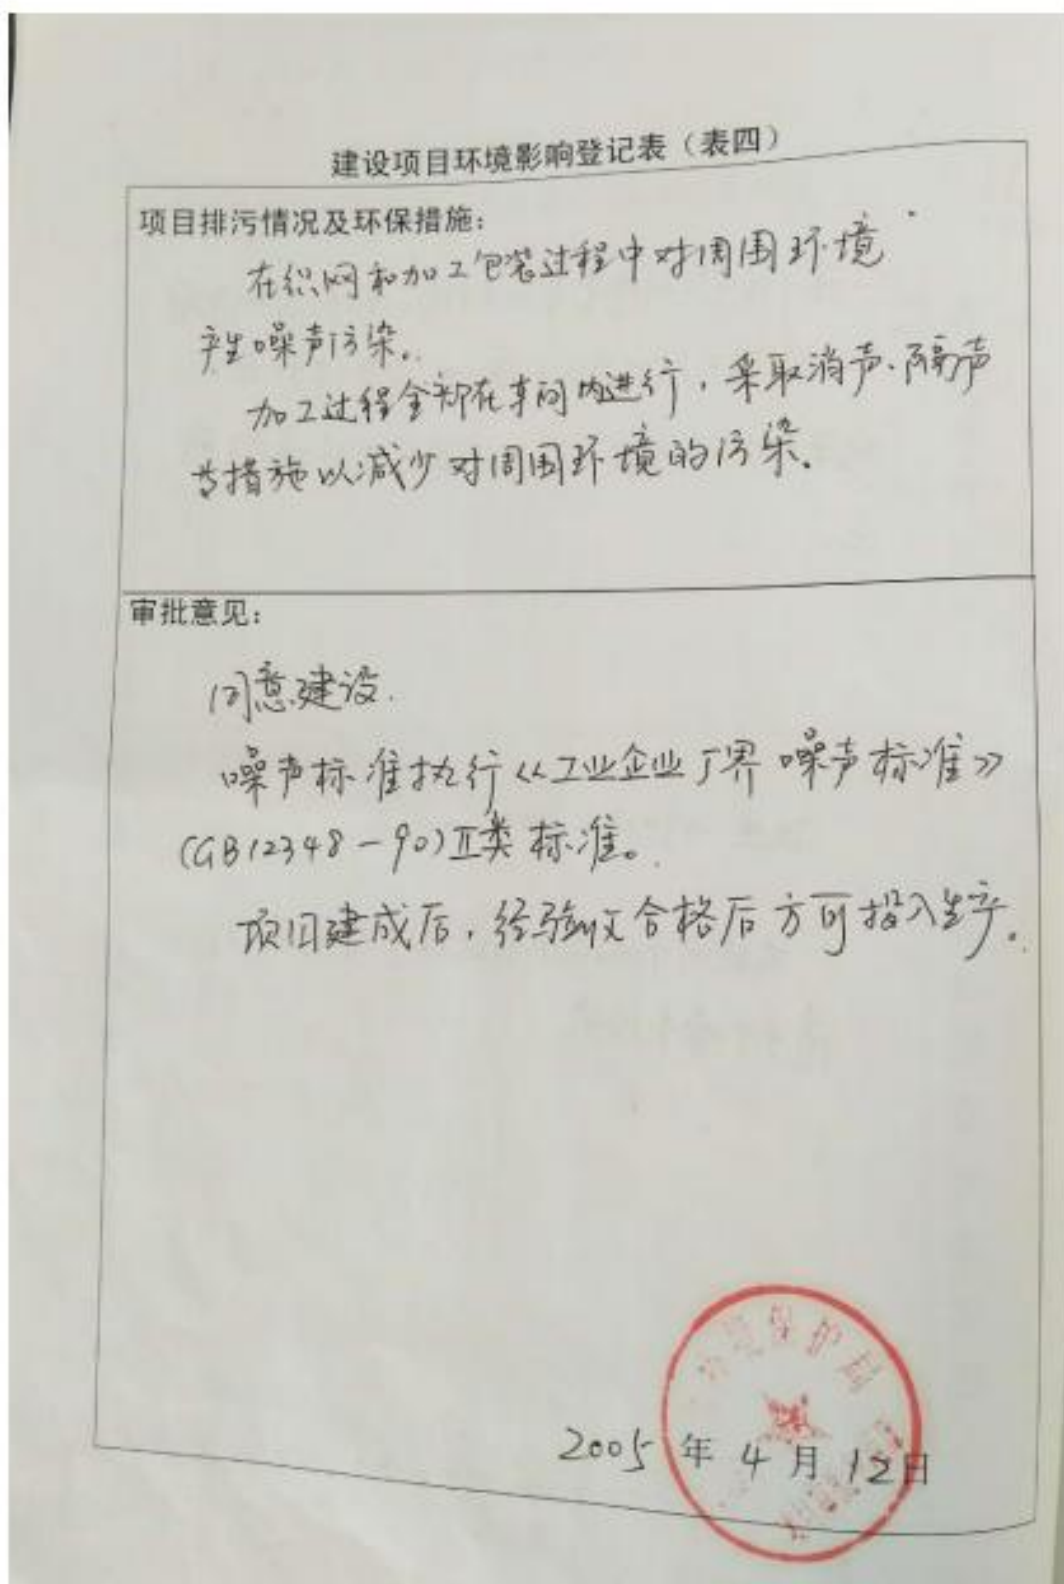 建设项目环境影响登记表（表四）
项目排污情况及环保措施：
在织网和加工包装过程中对周围环境
产生噪声污染。
加工过程全部在车间内进行，采取消声、隔声
等措施以减少对周围环境的污染。
审批意见：
同意建设.
噪声标准执行《工业企业厂界噪声标准》
(GB12348-90)Ⅱ类标准。
项目建成后，经验收合格后方可投入生产。
环境保护局
2005年4月12日